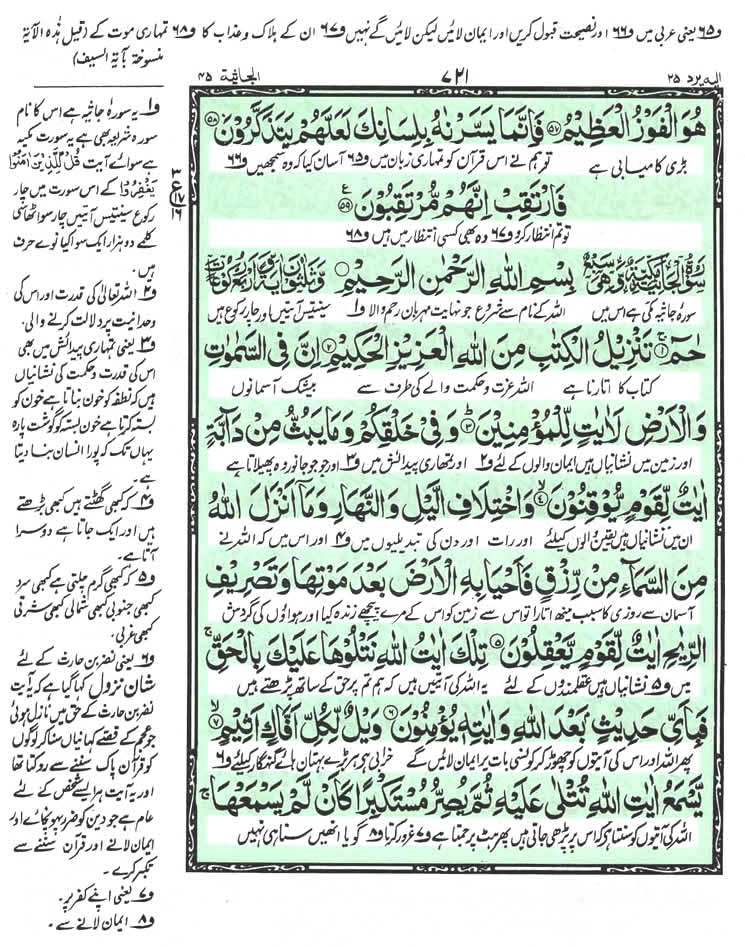 و۶۵ یعنی عربی میں و۶۶ اور نصیحت قبول کریں اور ایمان لائیں لیکن لائیں گے نہیں و۶۷ ان کے ہلاک و عذاب کا و۶۸ تمہاری موت کے (قیل ہٰذہ الآیۃ
منسوخۃ بآیۃ السیف)
الیہ یرد ۲۵
۷۲۱
الجاثیۃ ۴۵
هُوَ الْفَوْزُ الْعَظِیْمُ ﴿۵۷﴾ فَاِنَّمَا یَسَّرْنٰهُ بِلِسَانِكَ لَعَلَّهُمْ یَتَذَكَّرُوْنَ ﴿۵۸﴾
بڑی کامیابی ہے تو ہم نے اس قرآن کو تمہاری زبان میں و۶۵ آسان کیا کہ وہ سمجھیں و۶۶
فَارْتَقِبْ اِنَّهُمْ مُّرْتَقِبُوْنَ ﴿۵۹﴾
تو تم انتظار کرو و۶۷ وہ بھی کسی انتظار میں ہیں و۶۸
بِسْمِ اللّٰهِ الرَّحْمٰنِ الرَّحِیْمِ
سورۂ جاثیہ مکی ہے اس میں اللہ کے نام سے شروع جو نہایت مہربان رحم والا و۱ سینتیس آیتیں اور چار رکوع ہیں
حٰمٓ ﴿۱﴾ تَنْزِیْلُ الْكِتٰبِ مِنَ اللّٰهِ الْعَزِیْزِ الْحَكِیْمِ ﴿۲﴾ اِنَّ فِی السَّمٰوٰتِ
کتاب کا اتارنا ہے اللہ عزت و حکمت والے کی طرف سے بیشک آسمانوں
وَ الْاَرْضِ لَاٰیٰتٍ لِّلْمُؤْمِنِیْنَ ﴿۳﴾ وَ فِیْ خَلْقِكُمْ وَ مَا یَبُثُّ مِنْ دَآبَّةٍ
اور زمین میں نشانیاں ہیں ایمان والوں کے لئے و۲ اور تمہاری پیدائش میں و۳ اور جو جو جانور وہ پھیلاتا ہے
اٰیٰتٌ لِّقَوْمٍ یُّوْقِنُوْنَ ﴿۴﴾ وَ اخْتِلَافِ الَّیْلِ وَ النَّهَارِ وَ مَاۤ اَنْزَلَ اللّٰهُ
ان میں نشانیاں ہیں یقین والوں کیلئے اور رات اور دن کی تبدیلیوں میں و۴ اور اس میں کہ اللہ نے
مِنَ السَّمَآءِ مِنْ رِّزْقٍ فَاَحْیَا بِهِ الْاَرْضَ بَعْدَ مَوْتِهَا وَ تَصْرِیْفِ
آسمان سے روزی کا سبب مینھ اتارا تو اس سے زمین کو اس کے مرے پیچھے زندہ کیا اور ہواؤں کی گردش
الرِّیٰحِ اٰیٰتٌ لِّقَوْمٍ یَّعْقِلُوْنَ ﴿۵﴾ تِلْكَ اٰیٰتُ اللّٰهِ نَتْلُوْهَا عَلَیْكَ بِالْحَقِّ
میں و۵ نشانیاں ہیں عقلمندوں کے لئے یہ اللہ کی آیتیں ہیں کہ ہم تم پر حق کے ساتھ پڑھتے ہیں
فَبِاَیِّ حَدِیْثٍۭ بَعْدَ اللّٰهِ وَ اٰیٰتِهٖ یُؤْمِنُوْنَ ﴿۶﴾ وَیْلٌ لِّكُلِّ اَفَّاكٍ اَثِیْمٍ ﴿۷﴾
پھر اللہ اور اس کی آیتوں کو چھوڑ کر کونسی بات پر ایمان لائیں گے خرابی ہے ہر بڑے بہتان ہائے گنہگار کیلئے و۶
یَّسْمَعُ اٰیٰتِ اللّٰهِ تُتْلٰى عَلَیْهِ ثُمَّ یُصِرُّ مُسْتَكْبِرًا كَاَنْ لَّمْ یَسْمَعْهَا
اللہ کی آیتوں کو سنتا ہے کہ اس پر پڑھی جاتی ہیں پھر ہٹ پر جمتا ہے و۷ غرور کرتا و۸ گویا انھیں سنا ہی نہیں
و۱ یہ سورۂ جاثیہ ہے اس کا نام
سورہ شریعہ بھی ہے یہ سورت مکیہ
ہے سوائے آیت قُلْ لِّلَّذِیْنَ اٰمَنُوْا
یَغْفِرُوْا کے اس سورت میں چار
رکوع سینتیس آیتیں چار سو اٹھاسی
کلمے دو ہزار ایک سو اکیانوے حرف
ہیں۔
و۲ اللہ تعالیٰ کی قدرت اور اس کی
وحدانیت پر دلالت کرنے والی۔
و۳ یعنی تمہاری پیدائش میں بھی
اس کی قدرت و حکمت کی نشانیاں
ہیں کہ نطفہ کو خون بناتا ہے خون کو
بستہ کرتا ہے خون بستہ کو گوشت پارہ
یہاں تک کہ پورا انسان بنا دیتا
ہے۔
و۴ کہ کبھی گھٹتے ہیں کبھی بڑھتے
ہیں اور ایک جاتا ہے دوسرا
آتا ہے۔
و۵ کہ کبھی گرم چلتی ہے کبھی سرد
کبھی جنوبی کبھی شمالی کبھی شرقی
کبھی غربی۔
و۶ یعنی نضر بن حارث کے لئے
شان نزول کہا گیا ہے کہ یہ آیت
نضر بن حارث کے حق میں نازل ہوئی
جو عجم کے قصے کہانیاں سنا کر لوگوں
کو قرآن پاک سننے سے روکتا تھا
اور یہ آیت ہر ایسے شخص کے لئے
عام ہے جو دین کو ضرر پہونچائے اور
ایمان لانے اور قرآن سننے سے
تکبر کرے۔
و۷ یعنی اپنے کفر پر۔
و۸ ایمان لانے سے۔